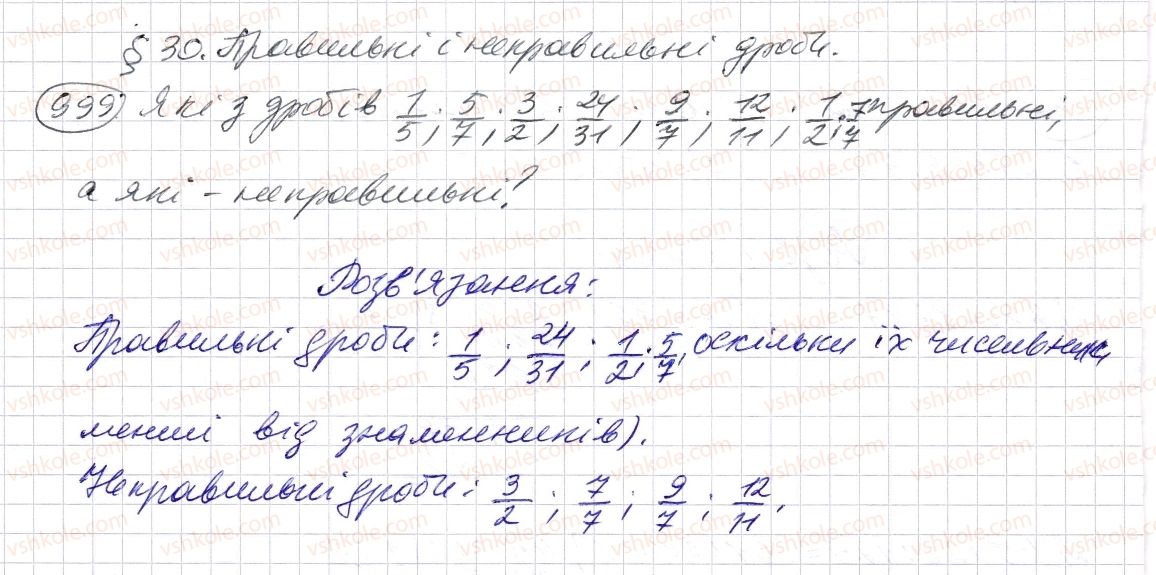 § 30. Правильні і неправильні дроби.
999) Які з дробів 1/5; 5/7; 3/2; 24/31; 9/7; 12/11; 1/2; 7/7 правильні,
а які – неправильні?
Розв'язання:
Правильні дроби: 1/5; 24/31; 1/2; 5/7, оскільки їх чисельники
менші від знаменників).
Неправильні дроби: 3/2; 7/7; 9/7; 12/11.
vshkole.com